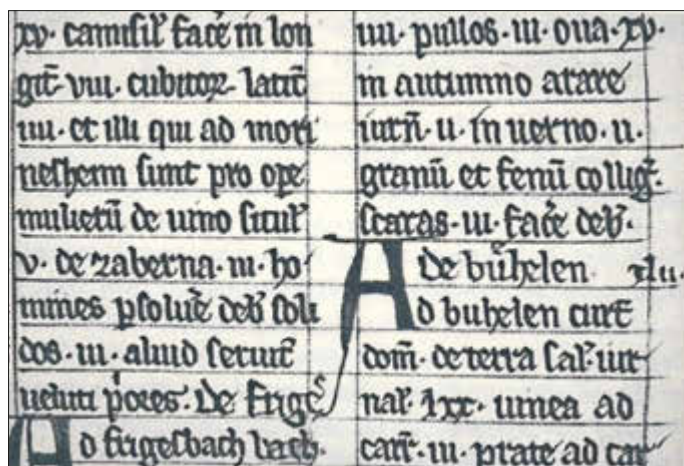 xv· camisil̄ fac̄e in lon
git̄· viii· cubitoꝝ· latit̄
iiii· et illi qui ad mori
nesherm sunt pro ope
mulierū de uino situl̄
v· de zaberna· iii· ho
mines ꝑsoluēe deb̄ soli
dos· iii· aliud seruit̄
ueluti p̄ores· De frigeˢ
Ad frigesbach bach·
iiii· pullos· iii· oua· xv·
in autumno arare
iurn̄· ii· in uerno· ii·
granū et fenū colliḡ·
scaras· iii· fac̄e deb̄·
De bu̍helen xlii·
Ad buhelen curt̄
dom̄· de terra sal̄· iur
nal̄· lxx· uinea ad
carr̄· iii· prate ad car